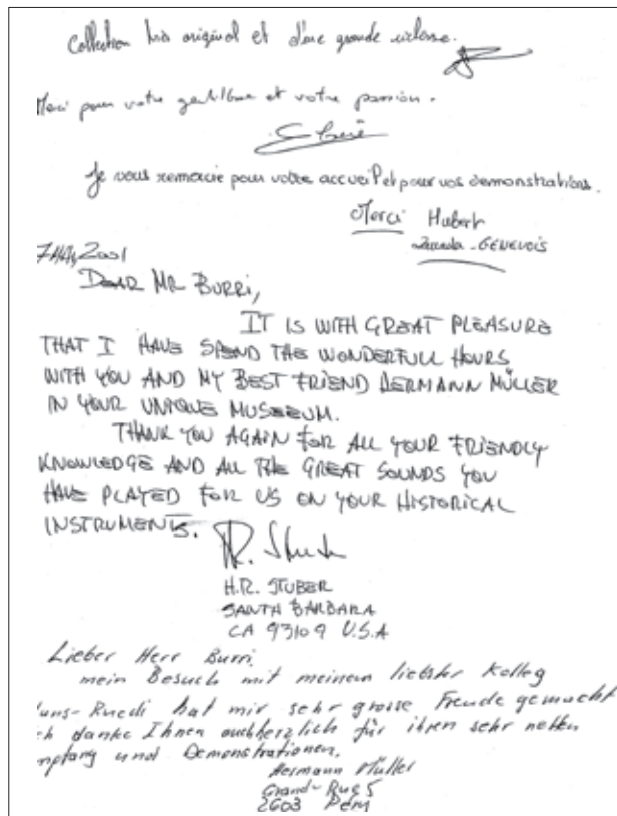 Collection très original et d'une grande richesse.
Merci pour votre gentillesse et votre passion.
Je vous remercie pour votre accueil et pour vos demonstrations.
Merci Hubert
GENEVOIS
7 MAY 2001
DEAR MR BURRI,
IT IS WITH GREAT PLEASURE
THAT I HAVE SPEND THE WONDERFULL HOURS
WITH YOU AND MY BEST FRIEND HERMANN MÜLLER
IN YOUR UNIQUE MUSEEUM.
THANK YOU AGAIN FOR ALL YOUR FRIENDLY
KNOWLEDGE AND ALL THE GREAT SOUNDS YOU
HAVE PLAYED FOR US ON YOUR HISTORICAL
INSTRUMENTS.
H.R. STUBER
SANTA BARBARA
CA 93109 U.S.A
Lieber Herr Burri,
mein Besuch mit meinem liebster Kolleg
uns-Ruedi hat mir sehr grosse Freude gemacht
ch danke Ihnen auch herzlich für ihren sehr netten
mpfang und Demonstrationen.
Hermann Müller
Grand-Rue 5
2603 Péry